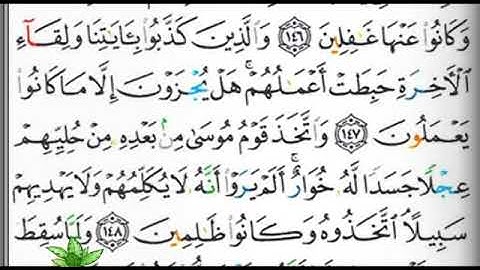 وَكَانُوا۟ عَنْهَا غَـٰفِلِينَ ١٤٦ وَٱلَّذِينَ كَذَّبُوا۟ بِـَٔايَـٰتِنَا وَلِقَآءِ
ٱلْـَٔاخِرَةِ حَبِطَتْ أَعْمَـٰلُهُمْ ۚ هَلْ يُجْزَوْنَ إِلَّا مَا كَانُوا۟
يَعْمَلُونَ ١٤٧ وَٱتَّخَذَ قَوْمُ مُوسَىٰ مِنۢ بَعْدِهِۦ مِنْ حُلِيِّهِمْ
عِجْلًا جَسَدًا لَّهُۥ خُوَارٌ ۚ أَلَمْ يَرَوْا۟ أَنَّهُۥ لَا يُكَلِّمُهُمْ وَلَا يَهْدِيهِمْ
سَبِيلًا ۘ ٱتَّخَذُوهُ وَكَانُوا۟ ظَـٰلِمِينَ ١٤٨ وَلَمَّا سُقِطَ